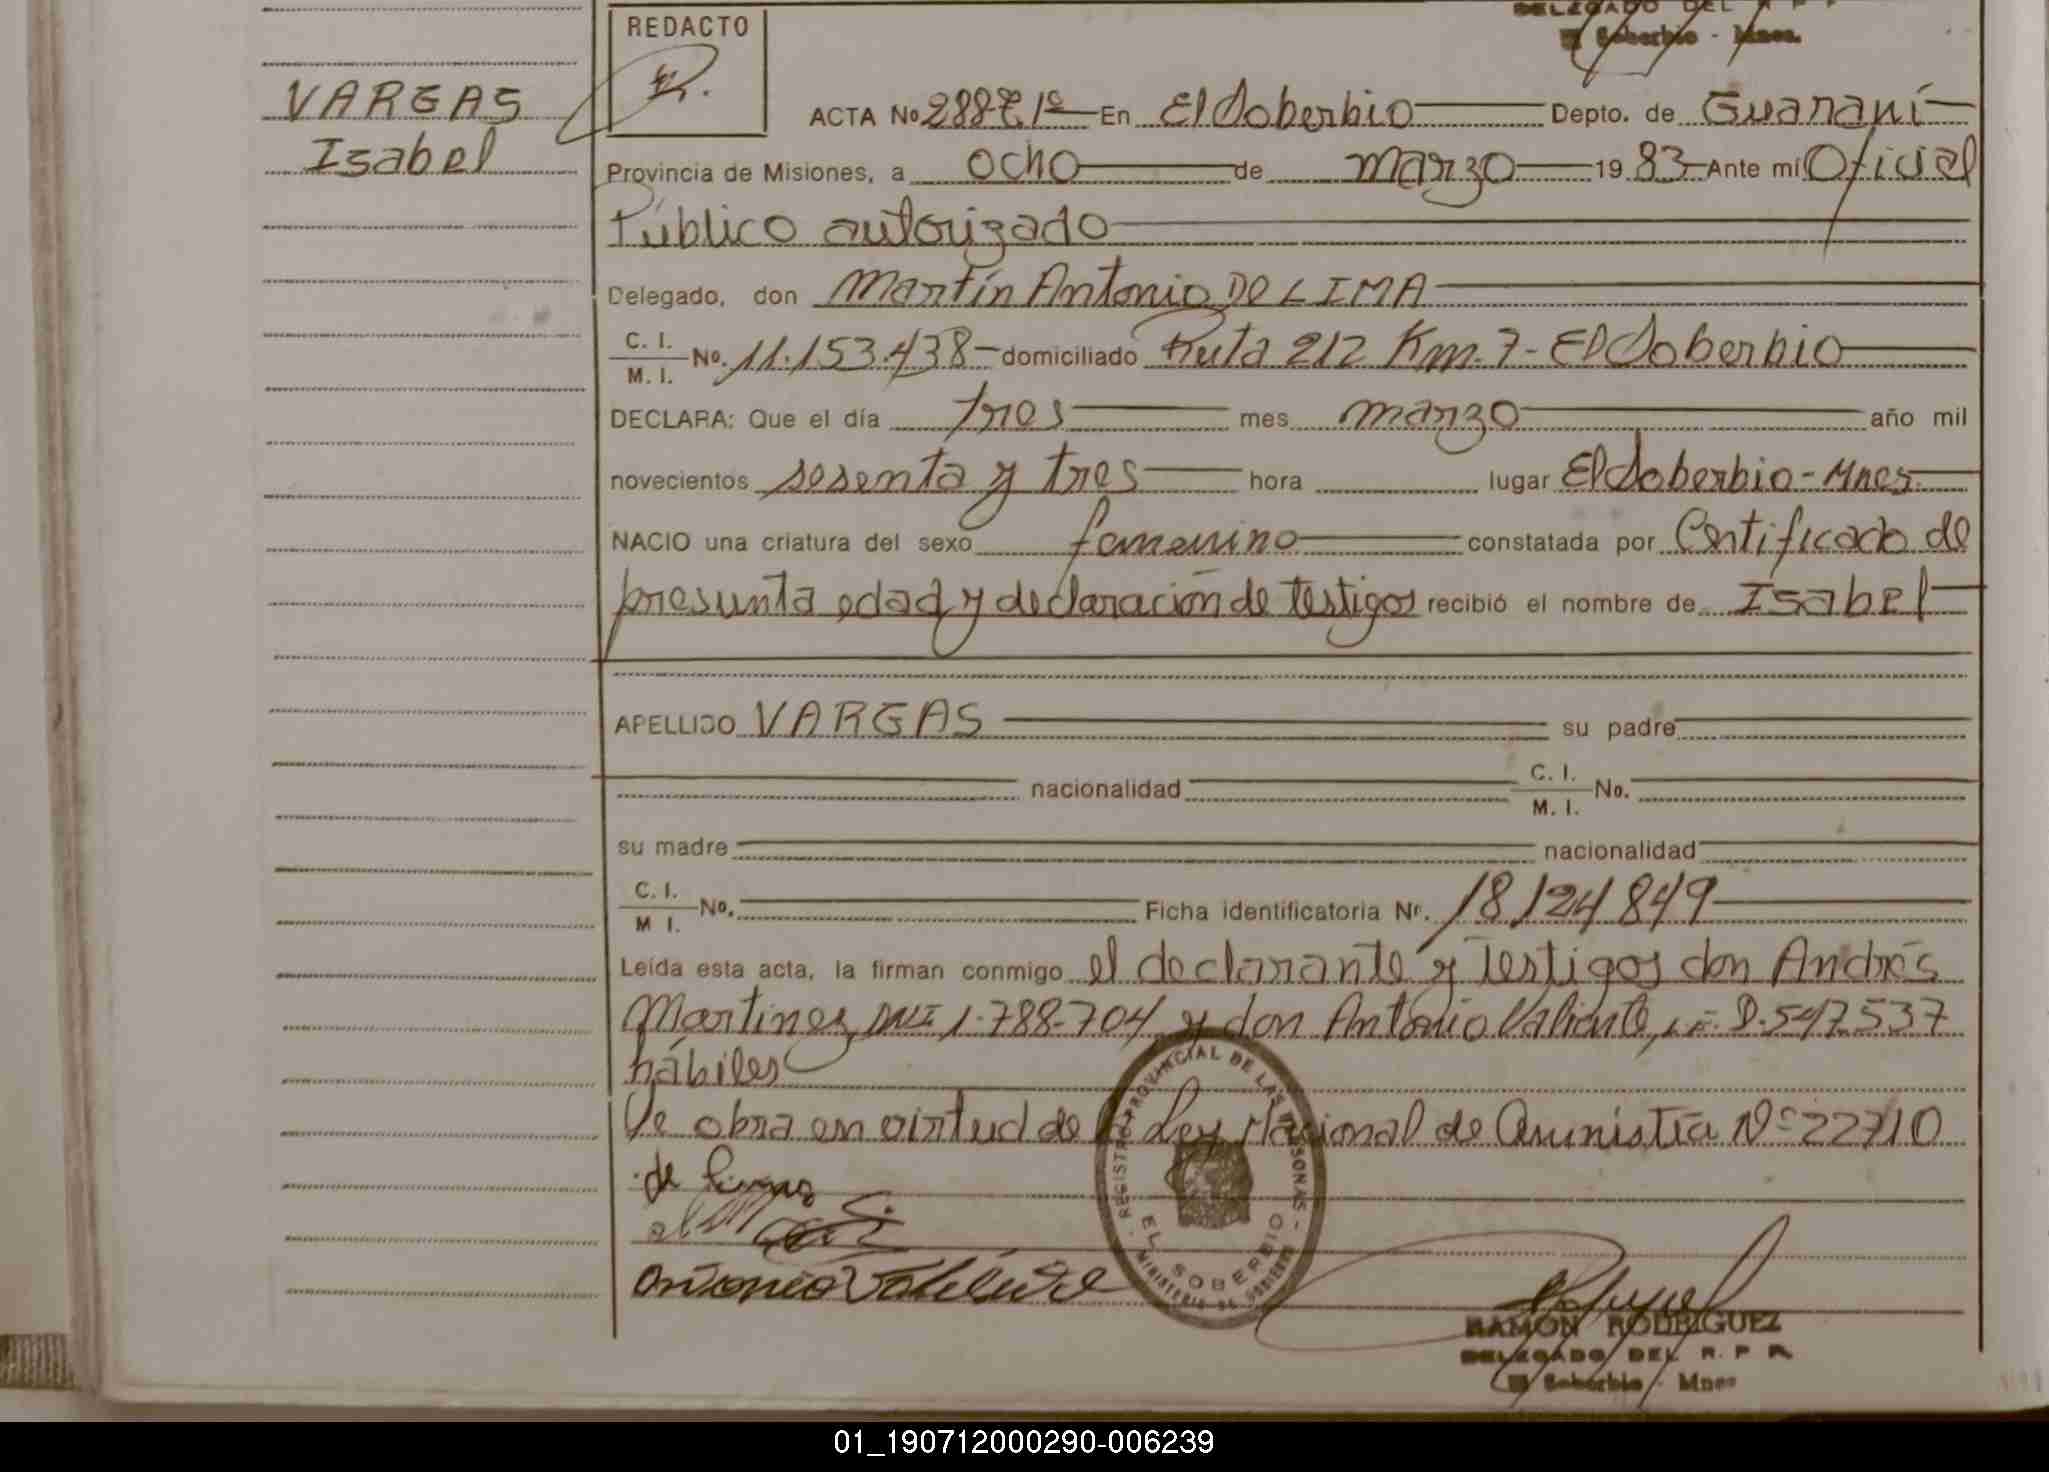 DELEGADO DEL R P
El Soberbio - Mnes.
REDACTO
VARGAS
Isabel
ACTA No 288 T 1º En El Soberbio Depto. de Guaraní
Provincia de Misiones, a ocho de marzo 19 83 Ante mí Oficial
Público autorizado
Delegado, don Martín Antonio DE LIMA
C. I. M. I. No. 11.153.438 domiciliado Ruta 212 Km. 7 - El Soberbio
DECLARA: Que el día tres mes marzo año mil
novecientos sesenta y tres hora lugar El Soberbio - Mnes.
NACIO una criatura del sexo femenino constatada por Certificado de
presunta edad y declaración de testigos recibió el nombre de Isabel
APELLIDO VARGAS su padre
nacionalidad C. I. M. I. No.
su madre nacionalidad
C. I. M I. No. Ficha identificatoria Nr. 18124849
Leída esta acta, la firman conmigo el declarante y testigos don Andrés
Martinez, DNI 1.788.704 y don Antonio Valiente, L.E. 8.547537
hábiles
Se obra en virtud de la Ley Nacional de Amnistía Nº 22710
REGISTRO PROVINCIAL DE LAS PERSONAS - MINISTERIO DE GOBIERNO
EL SOBERBIO
Antonio Valiente
RAMON RODRIGUEZ
DELEGADO DEL R. P P.
El Soberbio - Mnes
01_190712000290-006239